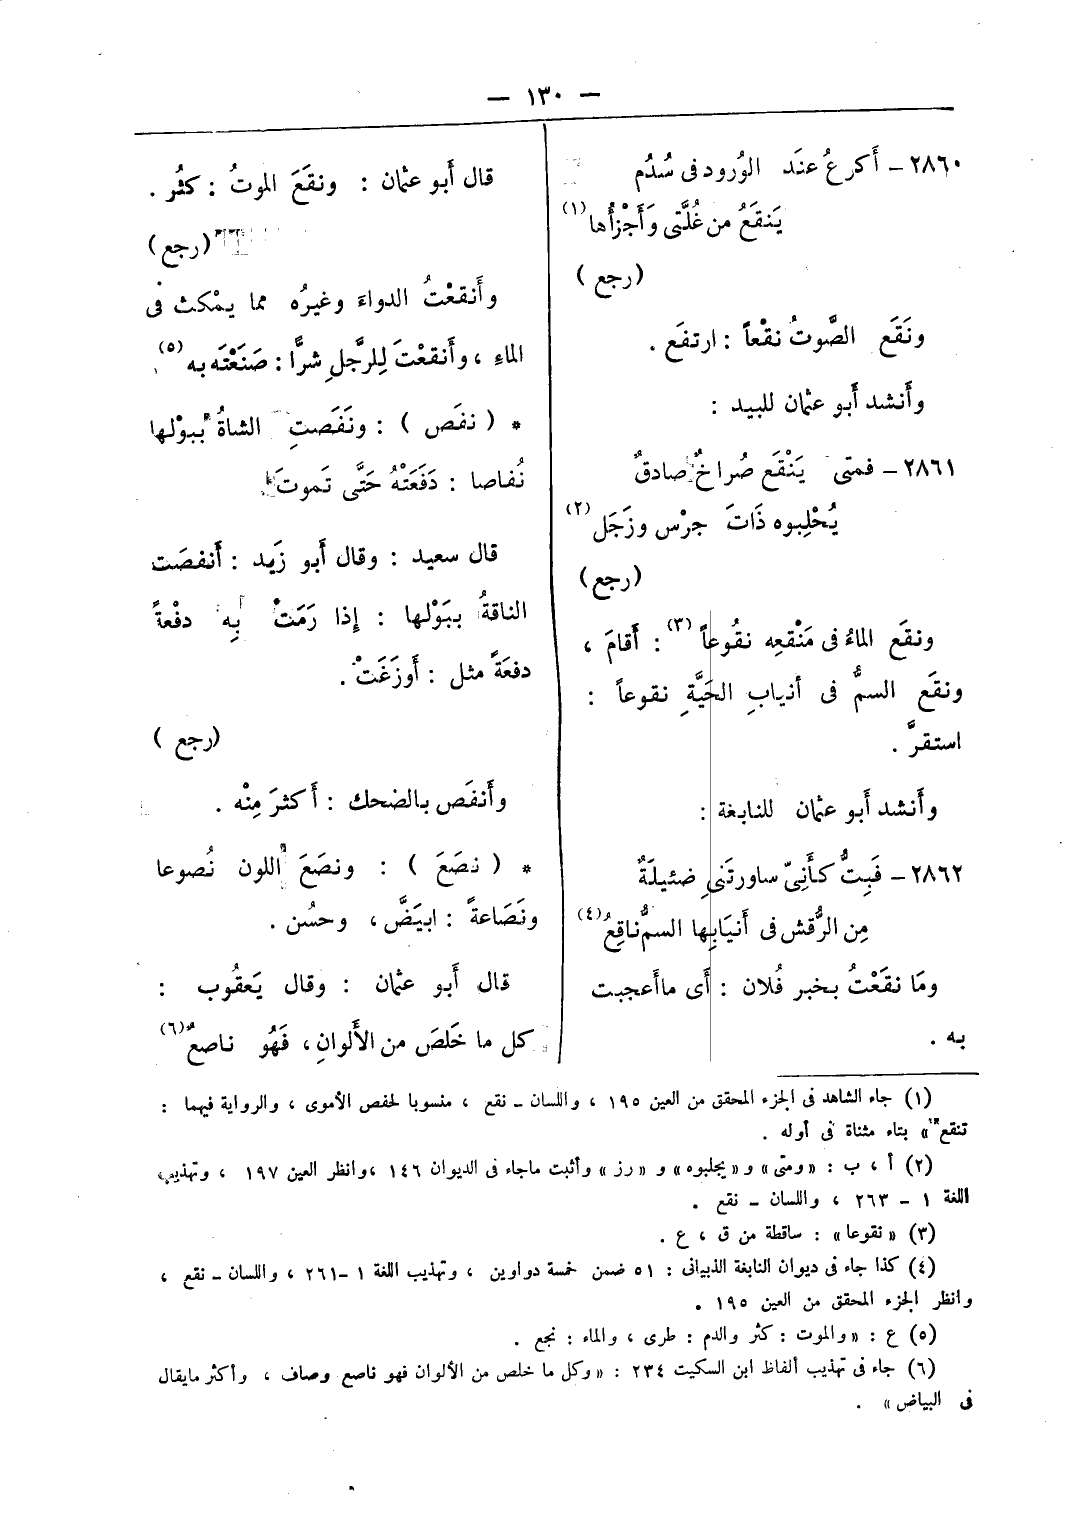 — ١٣٠ —
٢٨٦٠ – أَكرعُ عندَ الوُرود فى سُدُم
يَنقَعُ من غُلَّتى وَأَجْزُأُها (١)
(رجع)
ونَقَع الصَّوتُ نقْعاً : ارتفَع .
وأَنشد أَبو عثمان للبيد :
٢٨٦١ – فمتى يَنْقَع صُراخٌ صادقٌ
يُحْلِبوه ذَاتَ جرْس وزَجَل (٢)
(رجع)
ونقَع الماءُ فى مَنْقعِه نقُوعاً (٣) : أَقامَ ،
ونقَع السمُّ فى أنيابِ الحَيَّةِ نقوعاً :
استقرَّ .
وأَنشد أَبو عثمان للنابغة :
٢٨٦٢ – فَبِتُّ كأَنِّى ساورتَنىِ ضئيلَةٌ
مِن الرُّقش فى أَنيَابِها السمُّ ناقِعُ (٤)
ومَا نقَعْتُ بخبر فُلان : أَى ما أَعجبت
به .
قال أَبو عثمان : ونقَعَ الموتُ : كثُر .
(رجع)
وأَنقعْتُ الدواءَ وغيرُه مما يمْكث فى
الماءِ ، وأَنقعْتَ لِلرَّجلِ شرًّا : صَنَعْتَه به (٥)
* ( نفَص ) : ونَفَصتِ الشاةُ ببوْلها
نُفاصا : دَفَعَتْهُ حَتَّى تَموتَ .
قال سعيد : وقال أَبو زَيد : أَنفصَت
الناقةُ ببَوْلها : إِذا رَمَتْ بِه دفْعةً
دفعَةً مثل : أَوزَغَتْ .
(رجع )
وأَنفَص بالضحك : أَكثرَ مِنْه .
* ( نصَعَ ) : ونصَعَ اللون نُصوعا
ونَصَاعةً : ابيَضَّ ، وحسُن .
قال أَبو عثمان : وقال يَعقُوب :
كل ما خَلَصَ من الأَلوانِ ، فَهُو ناصعٌ (٦)
(١) جاء الشاهد فى الجزء المحقق من العين ١٩٥ ، واللسان – نقع ، منسوبا لحفص الأموى ، والرواية فيهما :
تنقع » بتاء مثناة فى أوله .
(٢) أ ، ب : «ومتى» و «يجلبوه» و «رز» وأثبت ماجاء فى الديوان ١٤٦ ،وانظر العين ١٩٧ ، وتهذيب
اللغة ١ – ٢٦٣ ، واللسان – نقع .
(٣) « نقوعا» : ساقطة من ق ، ع .
(٤) كذا جاء فى ديوان النابغة الذبيانى : ٥١ ضمن خمسة دواوين ، وتهذيب اللغة ١ –٢٦١ ، واللسان – نقع ،
وانظر الجزء المحقق من العين ١٩٥ .
(٥) ع : «والموت : كثر والدم : طرى ، والماء : نجع .
(٦) جاء فى تهذيب ألفاظ ابن السكيت ٢٣٤ : «وكل ما خلص من الألوان فهو ناصع وصاف ، وأكثر مايقال
فى البياض » .